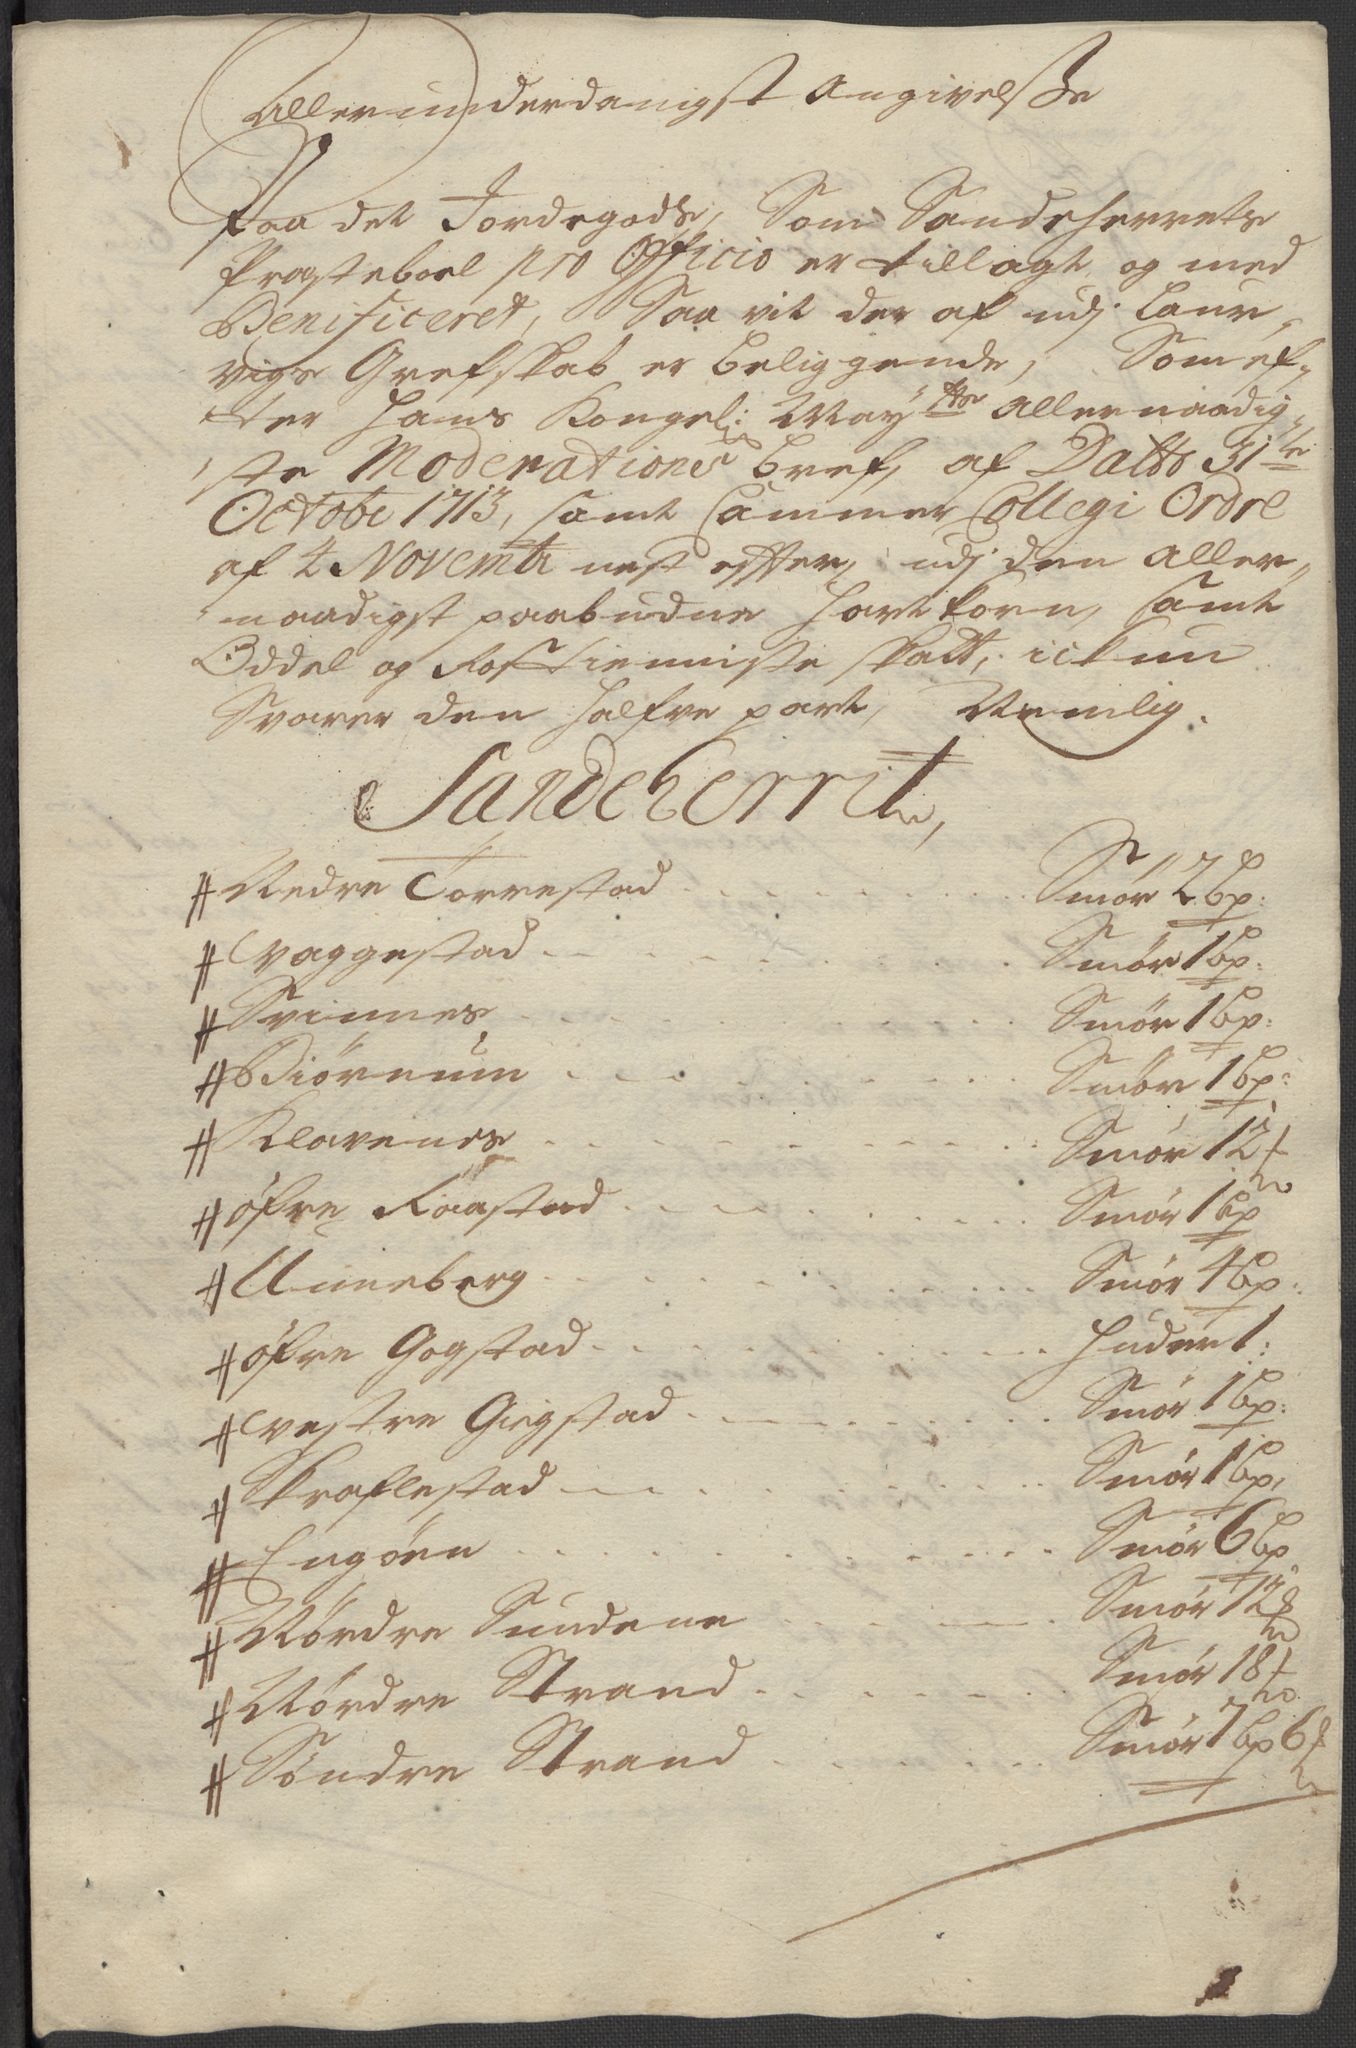 Allerunderdanigst Angivelsse
Paa det Jordegods, Som Sandeherrets
Præsteboel pro Officio er tillagt og med
Benificeret, Saa vit der af udj Laur„
vigs Grefskab er beliggende, Som ef„
ter Hans Kongel: Mayttes Allernaadig„
ste Moderations bref, af Datto 31te
Octobr 1713, samt Cammer Collegi Ordre
af 4 Novembr nest efter, udj den Aller„
naadigst paabudne Hartkorn, samt
Oddel og Rostienniste skatt, ickun
Svarer den halfve part, Nemlig.
Sandeherrit,
# Nedre Torrestad . . . . . . . Smør 2 bp:
# Vaggestad . . . . . . . Smør 1 bp:
# Svinnes . . . . . . . Smør 1 bp:
# Biørnum . . . . . . . Smør 1 bp:
# Klavenes . . . . . . . Smør 12 ℔
# øfre Raastad . . . . . . . Smør 1 bp
# Unneberg . . . . . . . Smør 4 bp:
# øfre Gogstad . . . . . . . Huder 1:
# Vestre Gogstad . . . . . . . Smør 1 bp:
# Skraflestad . . . . . . . Smør 1 bp,
# Engøen . . . . . . . Smør 6 bp
# Nørdre Sundene . . . . . Smør 12 ℔
# Nørdre Strand . . . . . . . Smør 18 ℔
# Søndre Strand . . . . . . . Smør 7 bp 6 ℔